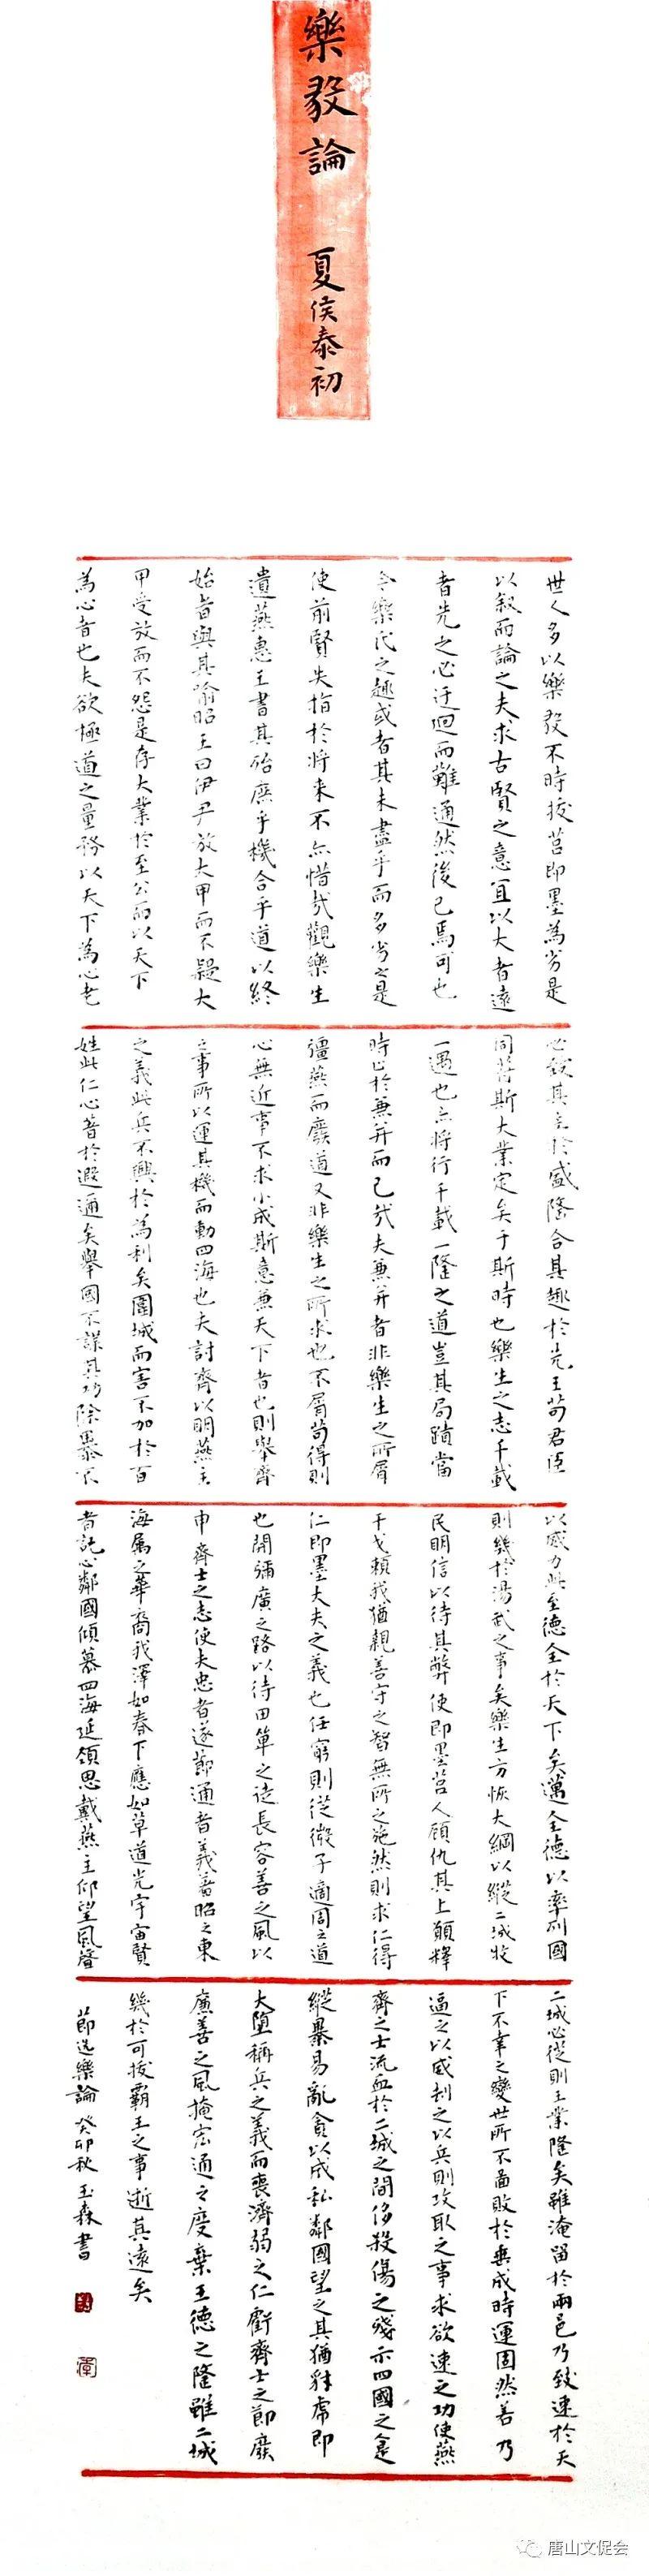 樂毅論 夏侯泰初
世人多以樂毅不時拔莒即墨為劣是
以叙而論之夫求古賢之意宜以大者遠
者先之必迂迴而難通然後已焉可也
今樂氏之趣或者其未盡乎而多劣之是
使前賢失指於將來不亦惜哉觀樂生
遺燕惠王書其殆庶乎機合乎道以終
始者與其喻昭王曰伊尹放大甲而不疑大
甲受放而不怨是存大業於至公而以天下
為心者也夫欲極道之量務以天下為心者
必致其主於盛隆合其趣於先王苟君臣
同符斯大業定矣于斯時也樂生之志千載
一遇也亦將行千載一隆之道豈其局蹟當
時止於兼并而已哉夫兼并者非樂生之所屑
彊燕而廢道又非樂生之所求也不屑苟得則
心無近事不求小成斯意兼天下者也則舉齊
之事所以運其機而動四海也夫討齊以明燕主
之義此兵不興於為利矣圍城而害不加於百
姓此仁心著於遐邇矣舉國不謀其功除暴不
以威力此至德全於天下矣邁全德以率列國
則幾於湯武之事矣樂生方恢大綱以縱二城牧
民明信以待其弊使即墨莒人顧仇其上願釋
干戈賴我猶親善守之智無所之施然則求仁得
仁即墨大夫之義也任窮則從微子適周之道
也開彌廣之路以待田單之徒長容善之風以
申齊士之志使夫忠者遂節通者義著昭之東
海屬之華裔我澤如春下應如草道光宇宙賢
者託心鄰國傾慕四海延頸思戴燕主仰望風聲
二城必從則王業隆矣雖淹留於兩邑乃致速於天
下不幸之變世所不啚敗於垂成時運固然善乃
逼之以威刦之以兵則攻取之事求欲速之功使燕
齊之士流血於二城之間侈殺傷之殘示四國之人是
縱暴易亂貪以成私鄰國望之其猶豺虎即
大墮稱兵之義而喪濟弱之仁虧齊士之節廢
廉善之風掩宏通之度棄王德之隆雖二城
幾於可拔霸王之事逝其遠矣
節选樂論 癸卯秋 玉森書
唐山文促会